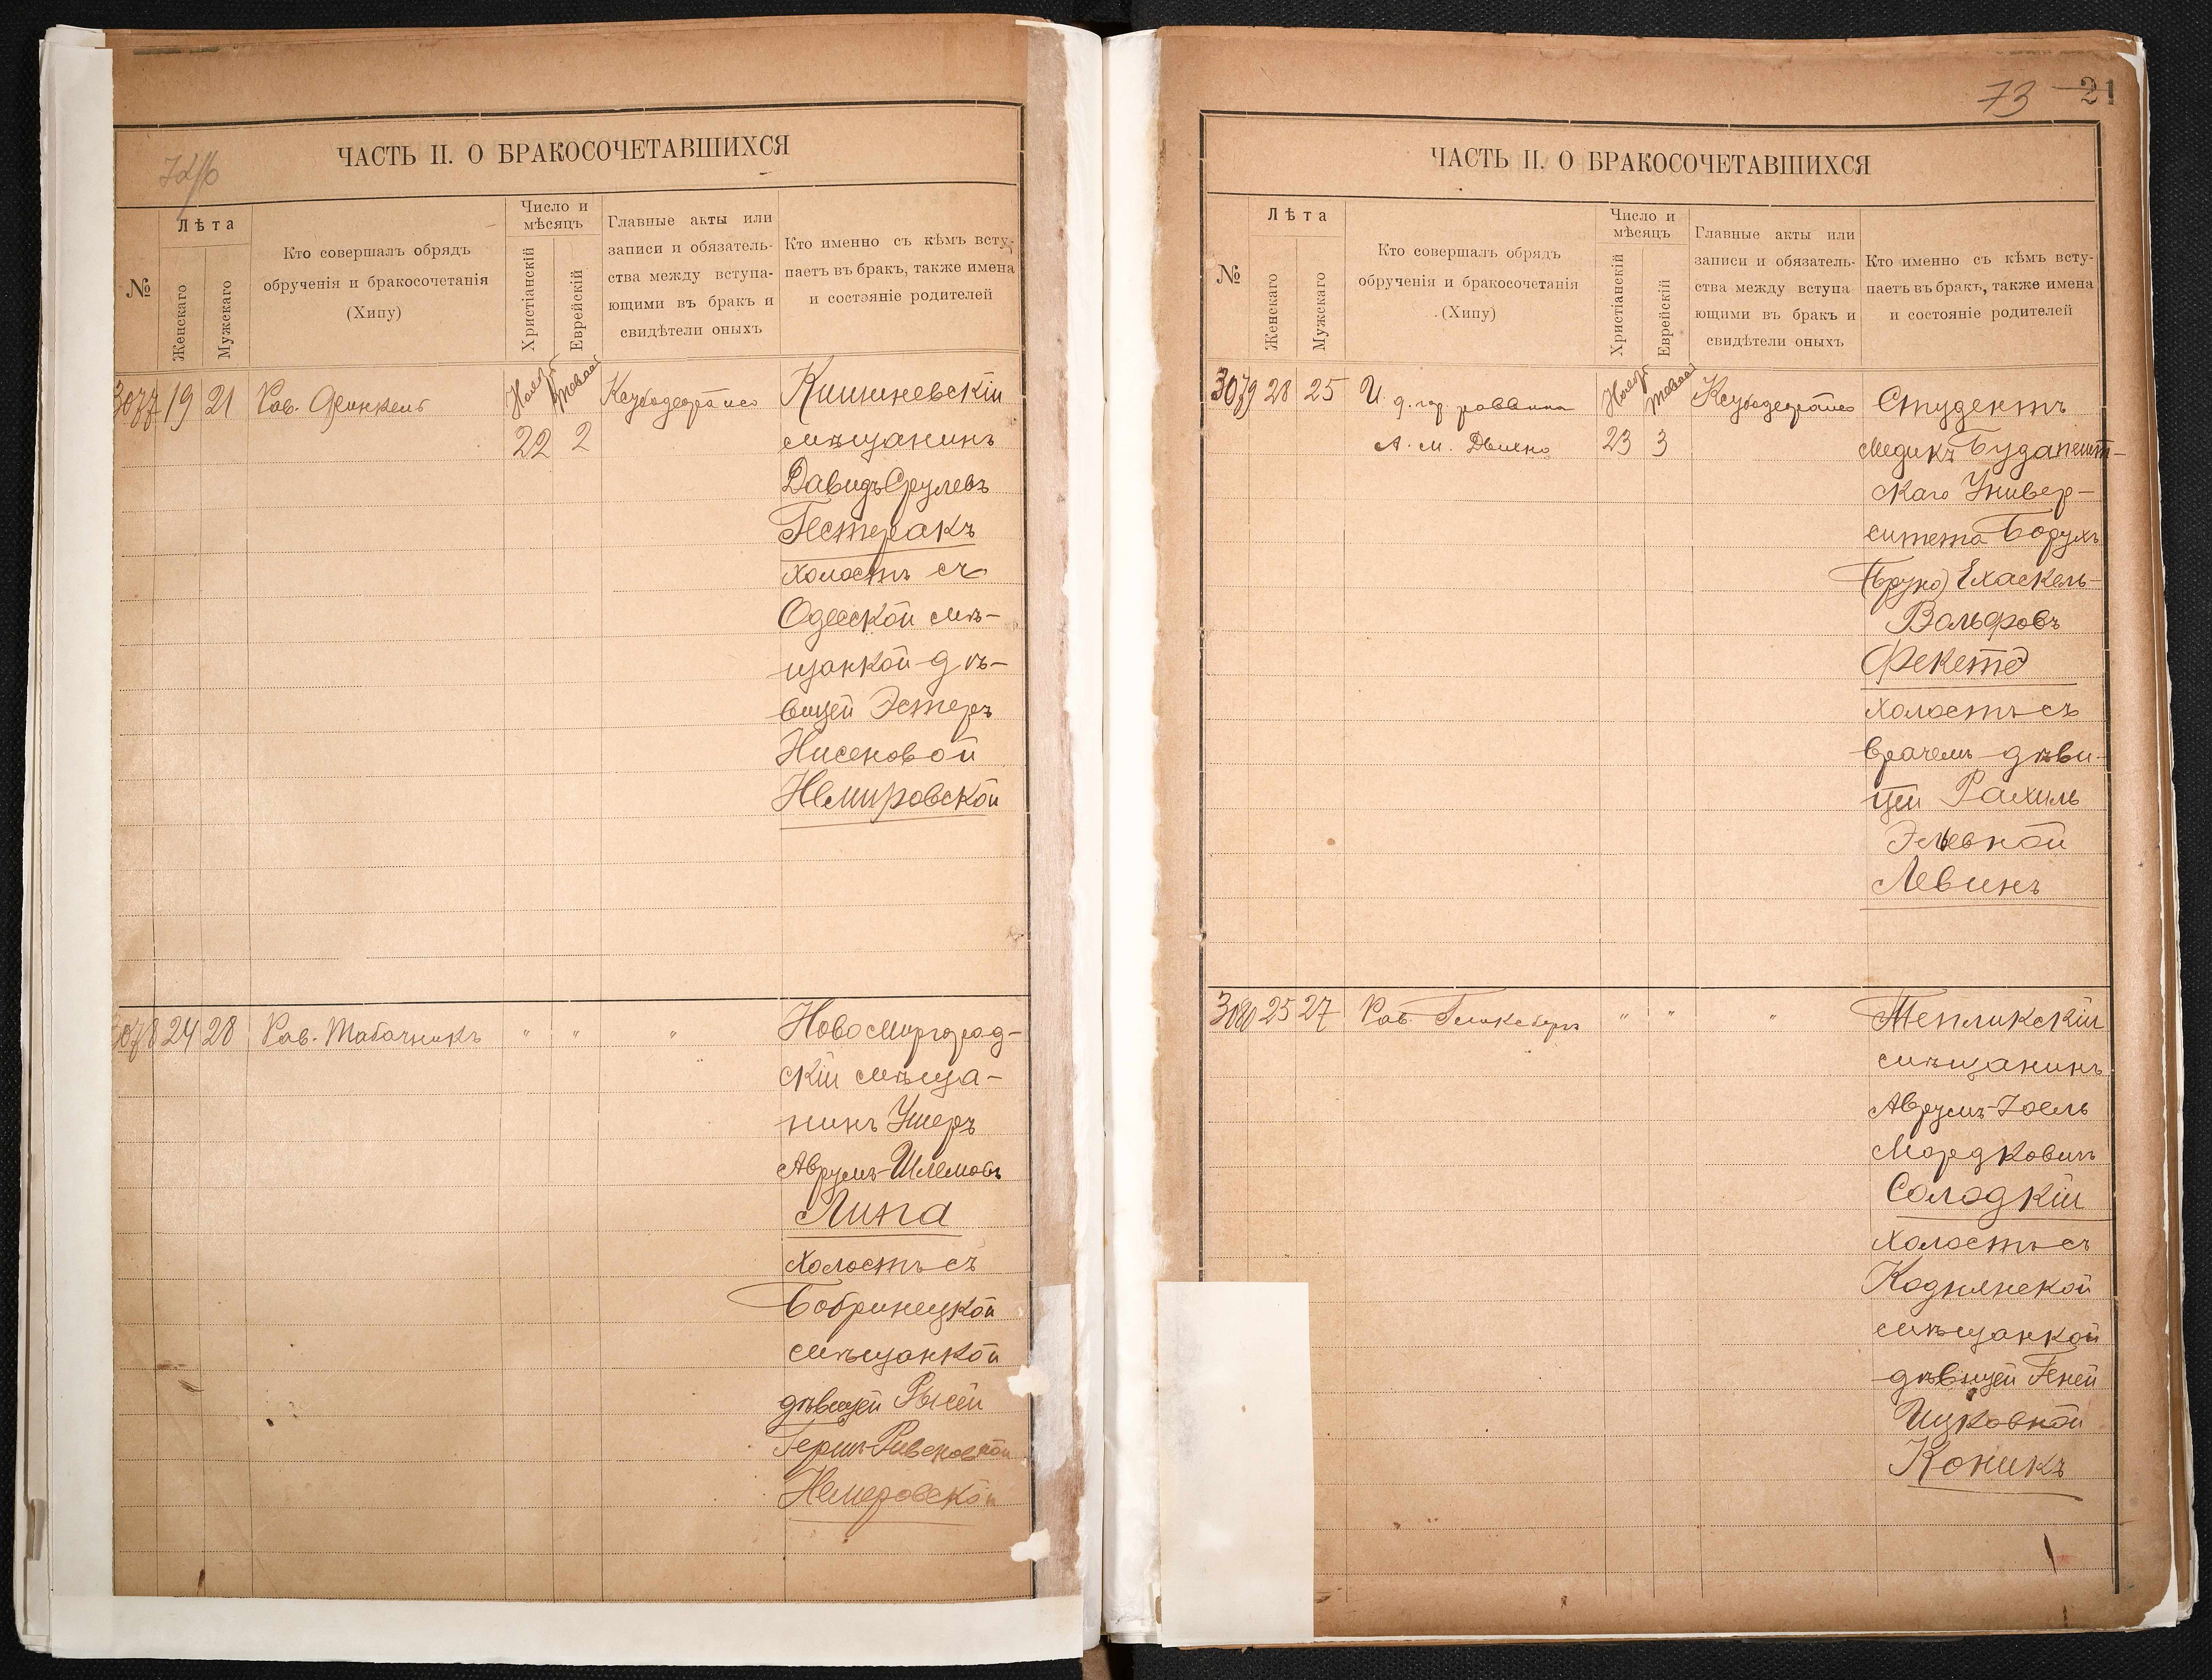 ЧАСТЬ II. О БРАКОСОЧЕТАВШИХСЯ
№
Лѣта
Женскаго
Мужскаго
Кто совершалъ обрядъ
обрученія и бракосочетанія
(Хипу)
Число и
мѣсяцъ
Христіанскій
Еврейскій
Главные акты или
записи и обязатель-
ства между вступа-
ющими въ бракъ и
свидѣтели оныхъ
Кто именно съ кѣмъ всту-
паетъ въ бракъ, также имена
и состояніе родителей
3077 19 21 Рав. Финкель
22 2
Кишиневскій
мѣщанинъ
Давидъ Срулевъ
Пестеракъ
холостъ съ
Одесской мѣ-
щанкой дѣ-
вицей Эстеръ
Нисеновой
Немировской
3078 24 28 Рав. Табачникъ " " "
Новомиргород-
скій мѣща-
нинъ Ушеръ
Аврумъ-Шлемовъ
Липа
холостъ съ
Бобринецкой
мѣщанкой
дѣвицей Рысей
Гершъ-Рувеновной
Немеровской
73 21
ЧАСТЬ II. О БРАКОСОЧЕТАВШИХСЯ
№
Лѣта
Женскаго
Мужскаго
Кто совершалъ обрядъ
обрученія и бракосочетанія
(Хипу)
Число и
мѣсяцъ
Христіанскій
Еврейскій
Главные акты или
записи и обязатель-
ства между вступа-
ющими въ бракъ и
свидѣтели оныхъ
Кто именно съ кѣмъ всту-
паетъ въ бракъ, также имена
и состояніе родителей
3079 28 25 И. д. гор. раввина
А. М. Дыхно 23 3
Студентъ
медикъ Будапешт-
скаго Универ-
ситета Борухъ
(Бруно) Ехаскель-
Вольфовъ
Фекетэ
холостъ съ
врачемъ дѣви-
цей Рахиль
Эльевной
Левинъ
3080 25 27 Рав. Гликсбергъ " " "
Тепликскій
мѣщанинъ
Аврумъ-Іоель
Мордковичъ
Солодкій
холостъ съ
Коднянской
мѣщанкой
дѣвицей Геней
Ицковной
Коникъ